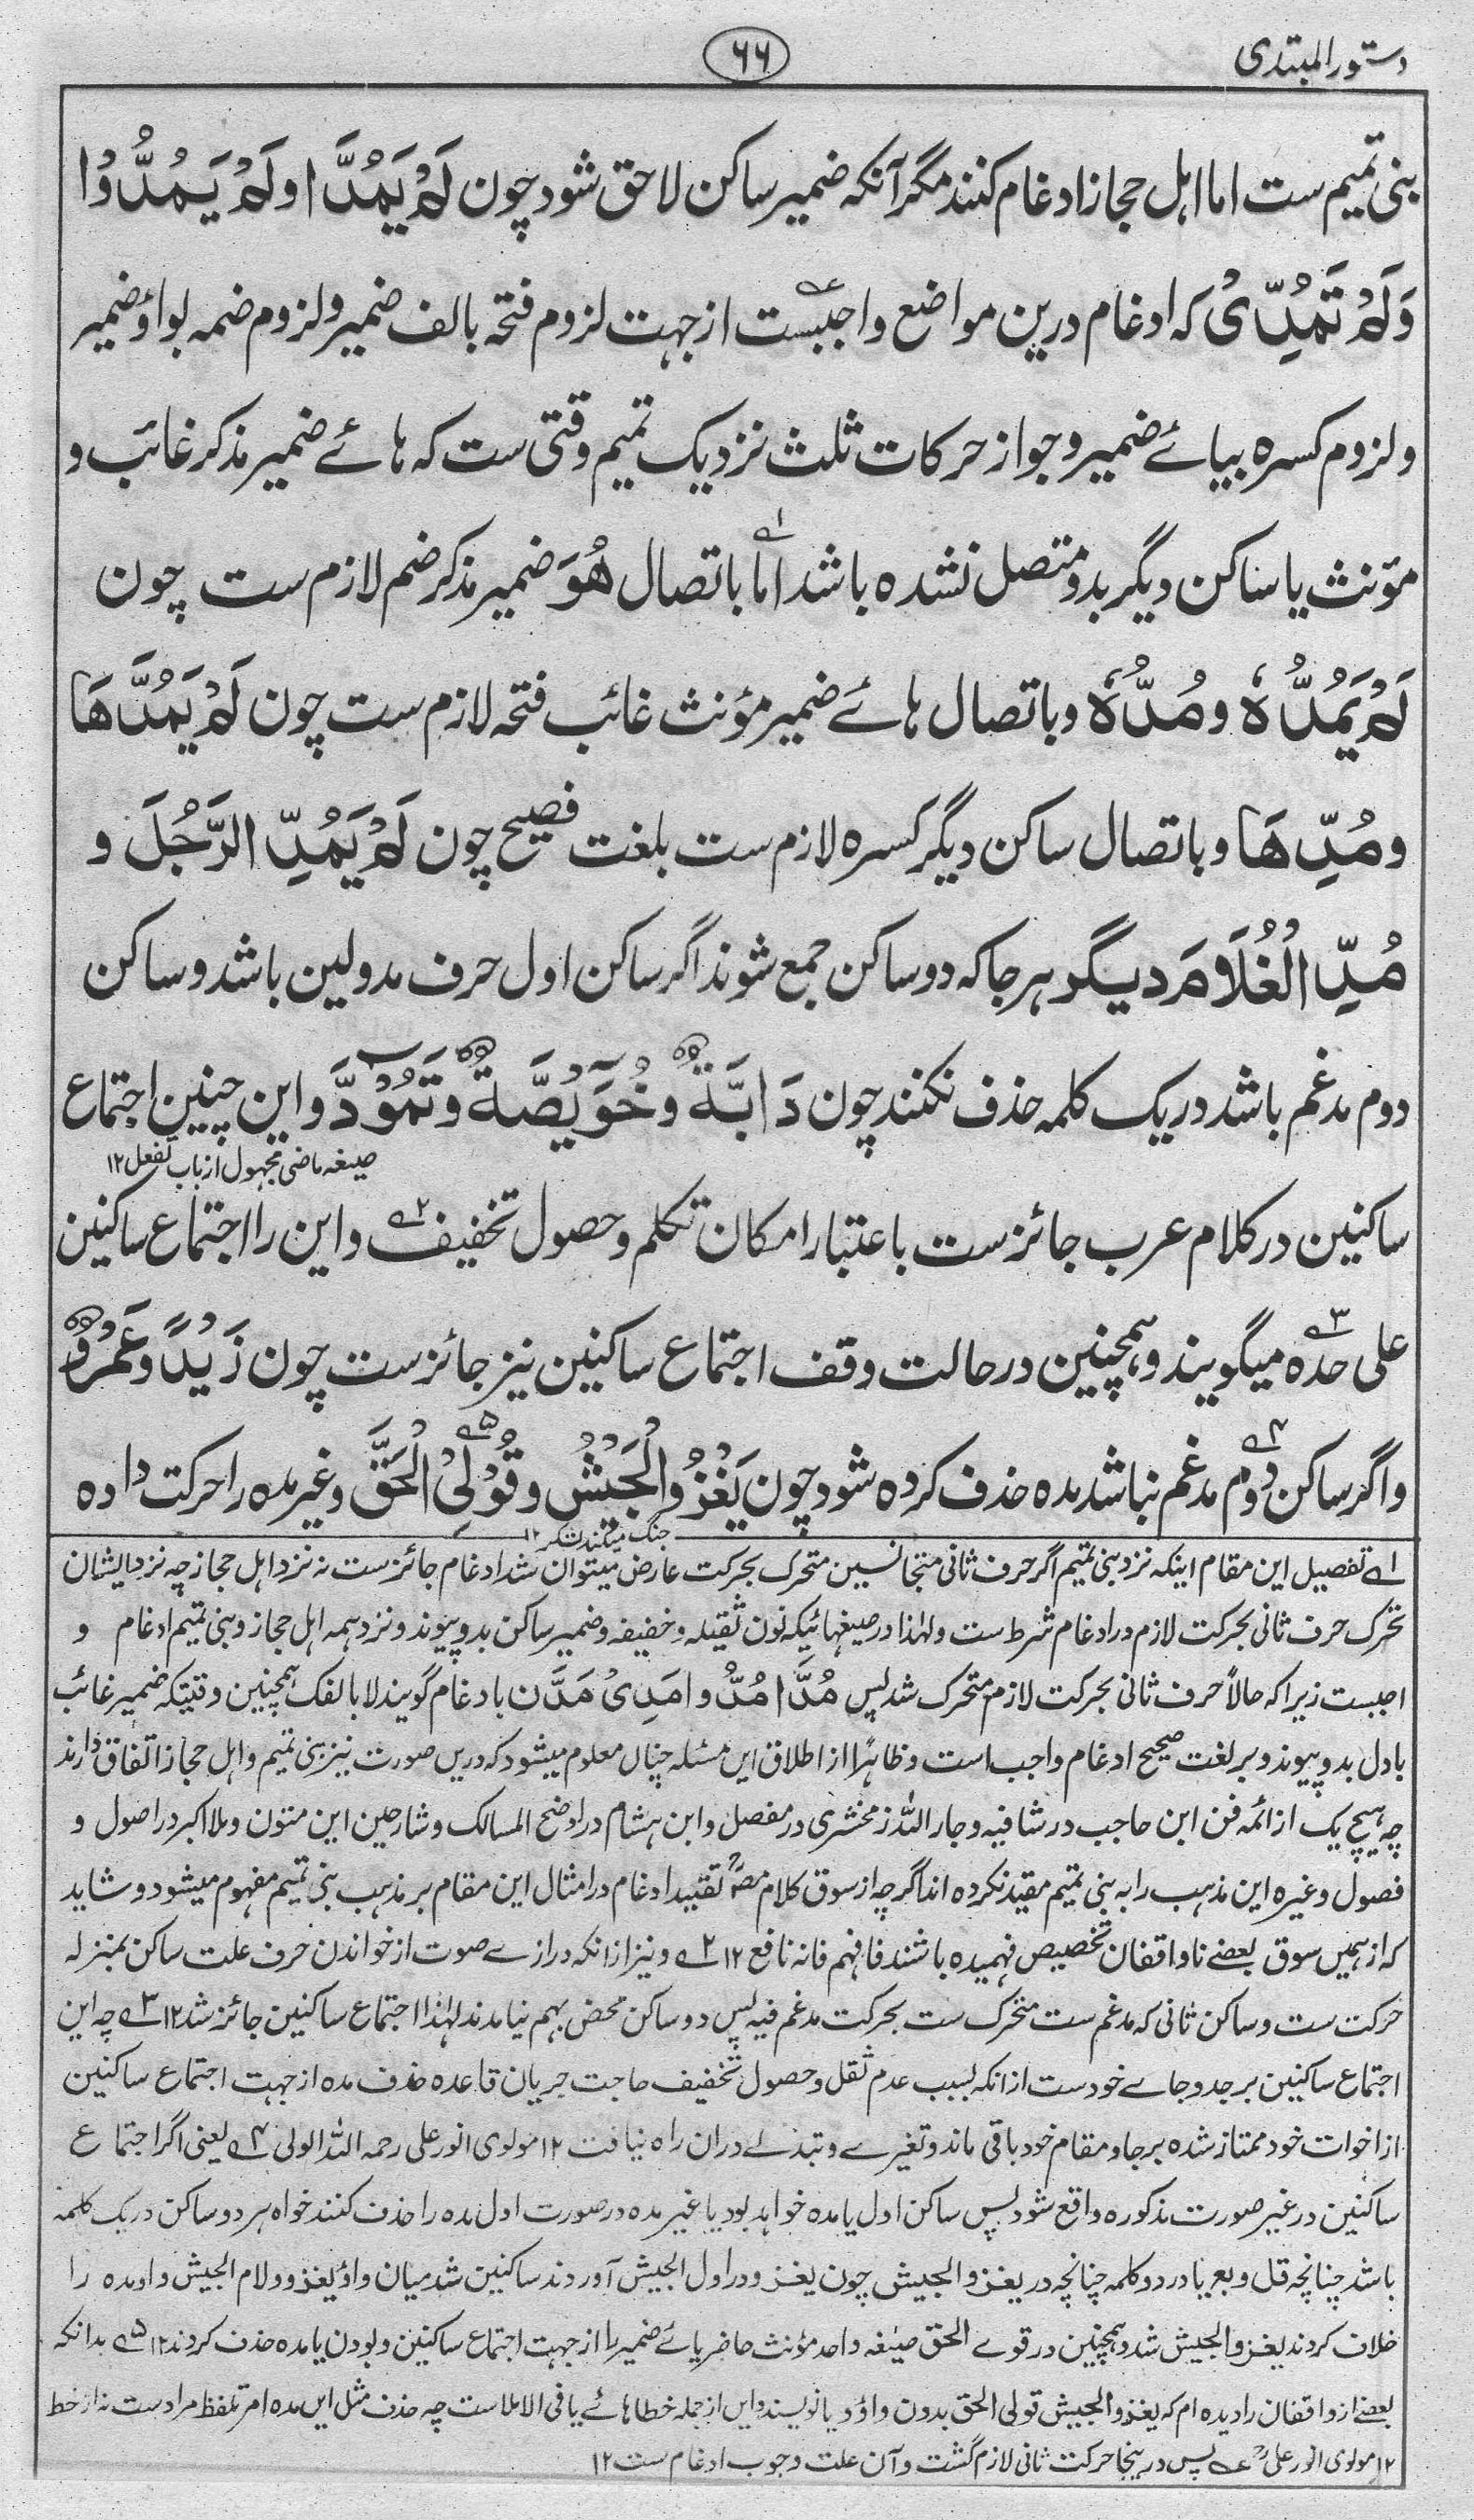 دستور المبتدی
۶۶
بنی تمیم ست اما اہل حجاز ادغام کنند مگر آنکہ ضمیر ساکن لاحق شود چون لَمْ یَمُدَّا و لَمْ یَمُدُّوْا
وَلَمْ تَمُدِّیْ کہ ادغام درین مواضع واجبست از جہت لزوم فتحہ بالف ضمیر و لزوم ضمہ بواؤ ضمیر
و لزوم کسرہ بیائے ضمیر و جواز حرکات ثلث نزدیک تمیم وقتی ست کہ ہائے ضمیر مذکر غائب و
مؤنث یا ساکن دیگر بدو متصل نشدہ باشد اما باتصال ھُوَ ضمیر مذکر ضم لازم ست چون
لَمْ یَمُدُّہٗ و مُدُّہٗ و باتصال ہائے ضمیر مؤنث غائب فتحہ لازم ست چون لَمْ یَمُدَّھَا
و مُدِّھَا و باتصال ساکن دیگر کسرہ لازم ست بلغت فصیح چون لَمْ یَمُدِّ الرَّجُلَ و
مُدِّ الْغُلَامَ دیگر ہر جا کہ دو ساکن جمع شوند اگر ساکن اول حرف مد و لین باشد و ساکن
دوم مدغم باشد در یک کلمہ حذف نکنند چون دَابَّةٌ و خُوَیْصَّةٌ و تُمُوْدَّ و این چنین اجتماع
صیغہ ماضی مجہول از باب تفعل ۱۲
ساکنین در کلام عرب جائز ست باعتبار امکان تکلم و حصول تخفیف ۲ و این را اجتماع ساکنین
علی حدہ ۳ میگویند و ہمچنین در حالت وقف اجتماع ساکنین نیز جائز ست چون زَیْدٌ وَعَمْرٌو
و اگر ساکن دوم ۴ مدغم نباشد مدہ حذف کردہ شود چون یَغْزُو الْجَیْشُ و قُوْلِی الْحَقَّ ۵ و غیر مدہ را حرکت دادہ
جنگ میکند لشکر ۱۲
۱ تفصیل این مقام اینکہ نزد بنی تمیم اگر حرف ثانی متجانسین متحرک بحرکت عارض میتوان شد ادغام جائز ست نہ نزد اہل حجاز چہ نزد ایشان
تحرک حرف ثانی بحرکت لازم در ادغام شرط ست ولہٰذا در صیغہائیکہ نون ثقیلہ و خفیفہ و ضمیر ساکن بدو پیوند و نزد ہمہ اہل حجاز و بنی تمیم ادغام و
اجبست زیرا کہ حالاً حرف ثانی بحرکت لازم متحرک شد پس مُدَّا مُدُّوا مُدِّیْ مُدَّنَ بادغام گویند لا بالفک ہمچنین وقتیکہ ضمیر غائب
بادل بدو پیوند و بر لغت صحیح ادغام واجب است و ظاہراً از اطلاق این مسئلہ چنان معلوم میشود کہ درین صورت نیز بنی تمیم و اہل حجاز اتفاق دارند
چہ ہیچ یک از ائمہ فن ابن حاجب در شافیہ و جار اللہ زمخشری در مفصل و ابن ہشام در اوضح المسالک و شارحین این متون و ملا اکبر در اصول و
فصول وغیرہ این مذہب را بہ بنی تمیم مقید نکردہ اند اگرچہ از سوق کلام مص تقیید ادغام در امثال این مقام بر مذہب بنی تمیم مفہوم میشود و شاید
کہ از ہمین سوق بعضے ناواقفان تخصیص فہمیدہ باشند فافہم فانہ نافع ۱۲ ۲ و نیز ازانکہ درازے صوت از خواندن حرف علت ساکن بمنزلہ
حرکت ست و ساکن ثانی کہ مدغم ست متحرک ست بحرکت مدغم فیہ پس دو ساکن محض بہم نیامدند لہٰذا اجتماع ساکنین جائز شد ۱۲ ۳ چہ این
اجتماع ساکنین بر حد و جاے خودست ازانکہ بسبب عدم ثقل و حصول تخفیف حاجت جریان قاعدہ حذف مدہ از جہت اجتماع ساکنین
از اخوات خود ممتاز شدہ بر جا و مقام خود باقی ماند و تغیرے و تبدلے دران راہ نیافت ۱۲ مولوی انور علی رحمہ اللہ الولی ۴ یعنی اگر اجتماع
ساکنین در غیر صورت مذکورہ واقع شود پس ساکن اول یا مدہ خواہد بود یا غیر مدہ در صورت اول مدہ را حذف کنند خواہ ہر دو ساکن در یک کلمہ
باشد چنانچہ قل و بع یا در دو کلمہ چنانچہ در یغزو الجیش چون یغزو در اول الجیش آوردند ساکنین شد میان واؤ یغزو و لام الجیش واو مدہ را
حذف کردند یغزو الجیش شد و ہمچنین در قولے الحق صیغہ واحد مؤنث حاضر یائے ضمیر را از جہت اجتماع ساکنین و بودن یا مدہ حذف کردند ۱۲ ۵ بدانکہ
بعضے از واقفان را دیدہ ام کہ یغزو الجیش قولی الحق بدون واؤ و یا نویسند و این از جملہ خطاہائے یا فی الاملاست چہ حذف مثل این مدہ امر تلفظ مرادست نہ از خط
۱۲ مولوی انور علی رح عہ پس درینجا حرکت ثانی لازم گشت و آن علت وجوب ادغام ست ۱۲